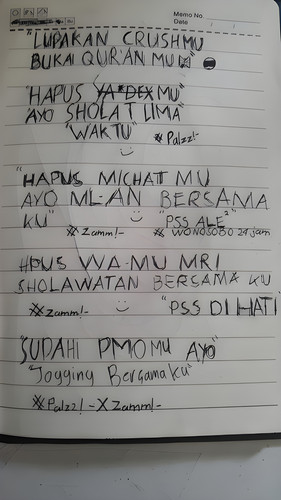 Memo No.
Date / /
"LUPAKAN CRUSHMU
BUKAI QUR'AN MU
"HAPUS YA*DEX MU"
AYO SHOLAT LIMA
"WAKTU"
Palzz!-
"HAPUS MICHAT MU
AYO ML-AN BERSAMA
KU"
"PSS ALE²"
Zamm!-
WONOSOBO 24 jam
HPUS WA-MU MRI
SHOLAWATAN BERSAMA KU
Zamm!-
"PSS DI HATI
"SUDAHI PMO MU AYO
"Jogging BersamaKu"
Palzz! - X Zamm!-